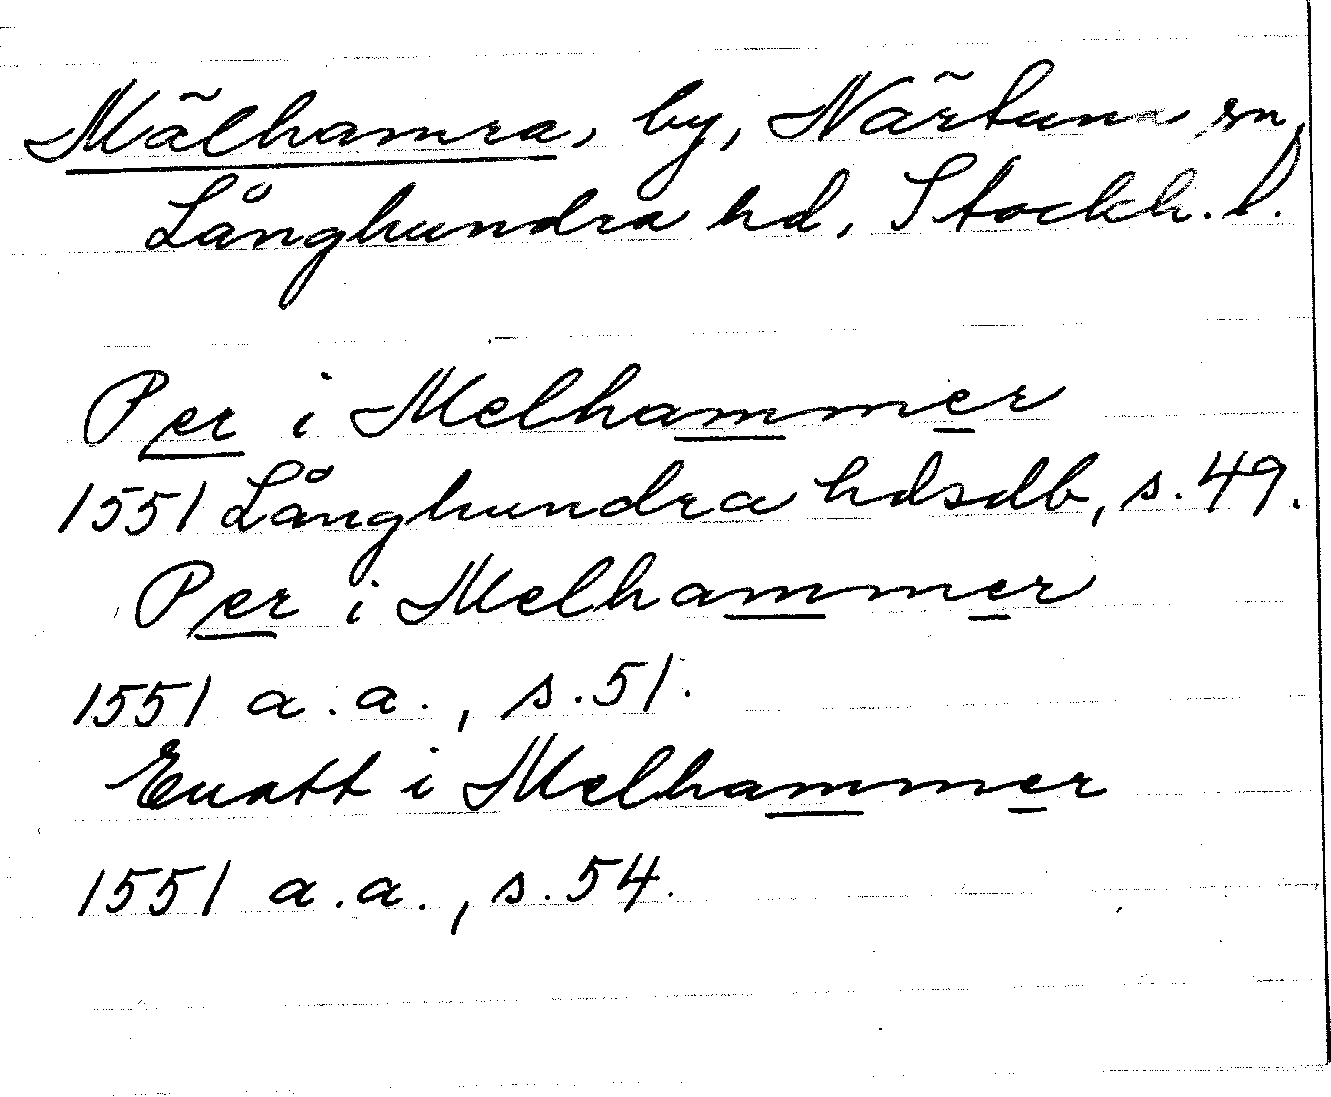 Mälhamra, by, Närtuna sn,
Långhundra hd, Stockh. l.
Per i Melhammer
1551 Långhundra hdsdb, s. 49.
Per i Melhammer
1551 a.a., s. 51.
Euatt i Melhammer
1551 a.a., s. 54.